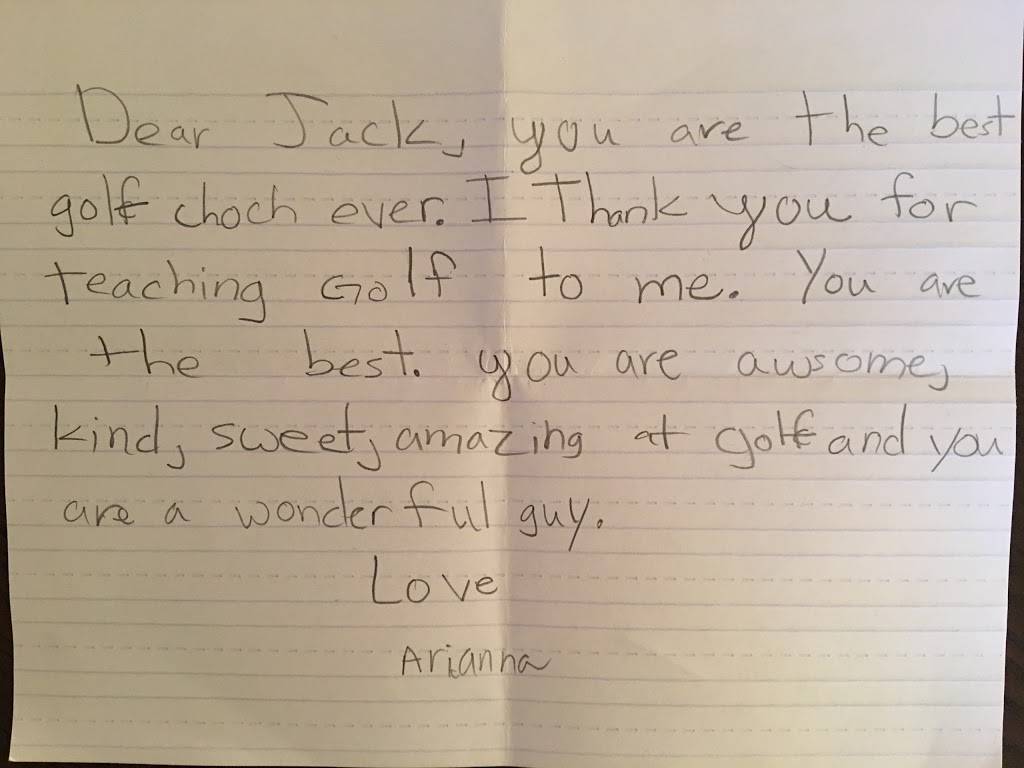 Dear Jack, you are the best
golf choch ever. I Thank you for
teaching Golf to me. You are
the best. you are awsome,
kind, sweet, amazing at golf and you
are a wonderful guy.
Love
Arianna